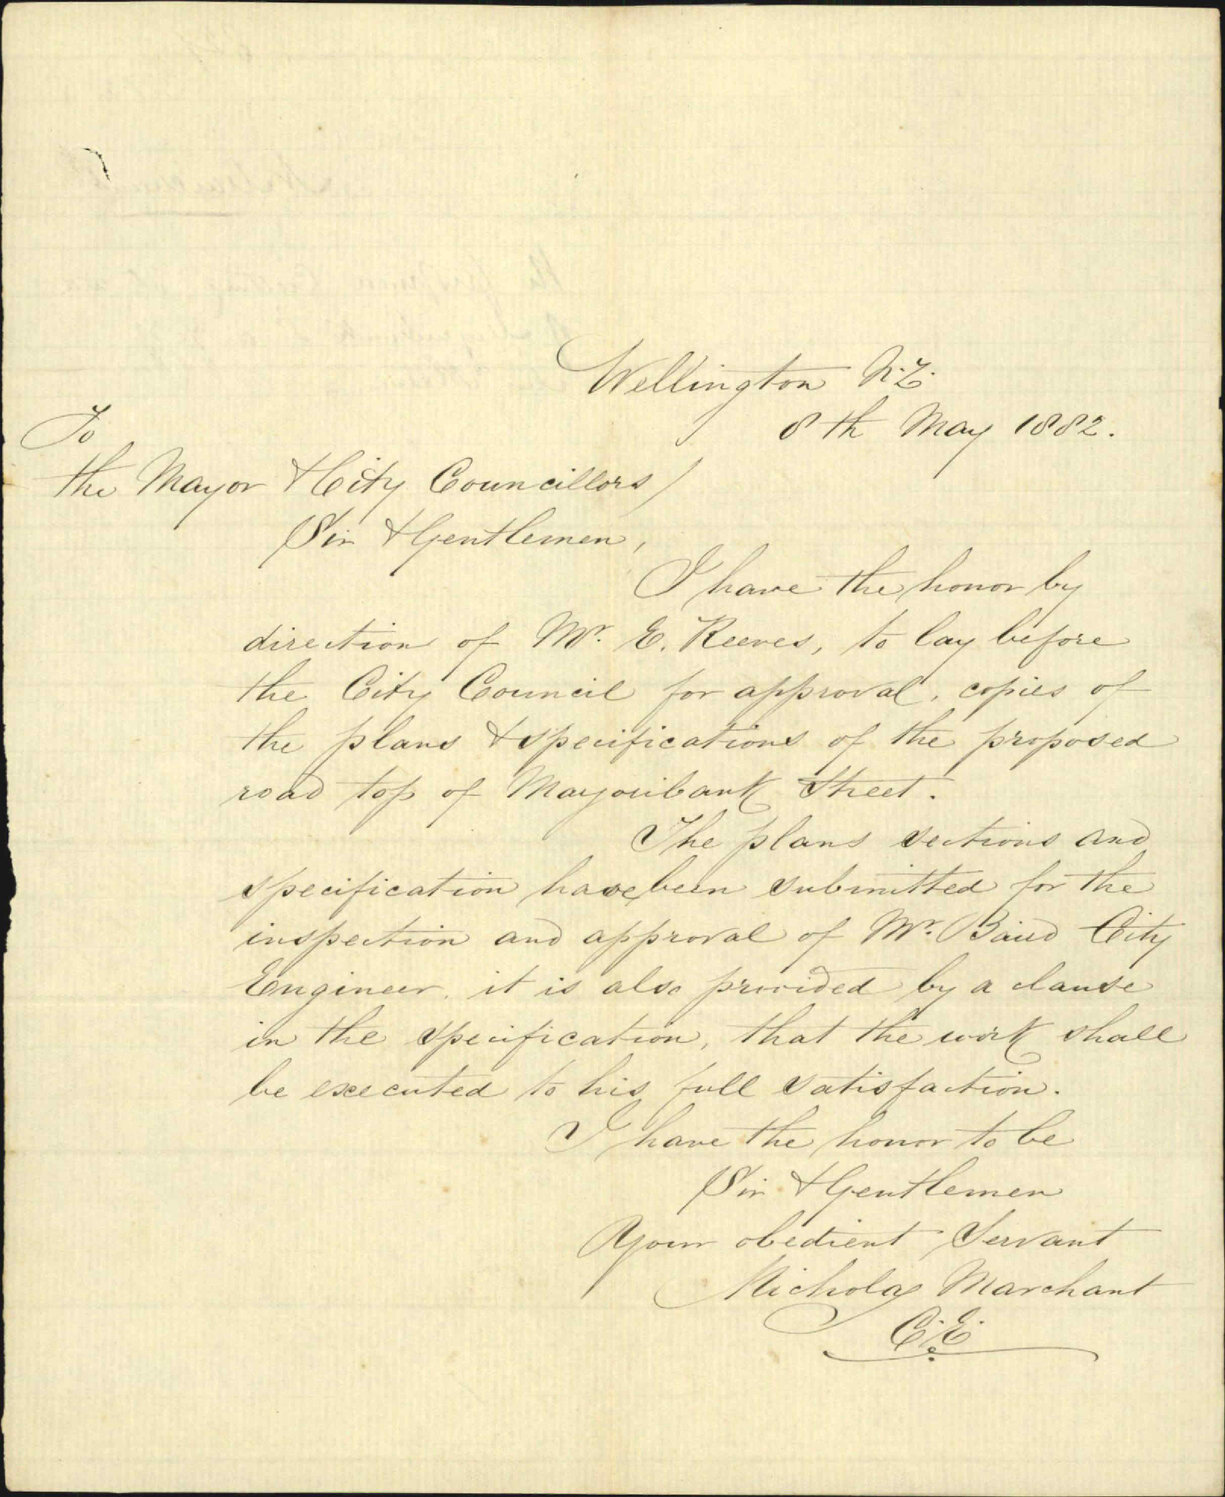 Wellington N.Z.
8th May 1882.
To
the Mayor & City Councillors/
Sir & Gentlemen,
I have the honor by
direction of Mr. E. Reeves, to lay before
the City Council for approval, copies of
the plans & specifications of the proposed
road top of Marjouibank Street.
The plans sections and
specification have been submitted for the
inspection and approval of Mr. Baird City
Engineer, it is also provided by a clause
in the specification, that the work shall
be executed to his full satisfaction.
I have the honor to be
Sir & Gentlemen
Your obedient Servant
Nicholas Marchant
C.E.